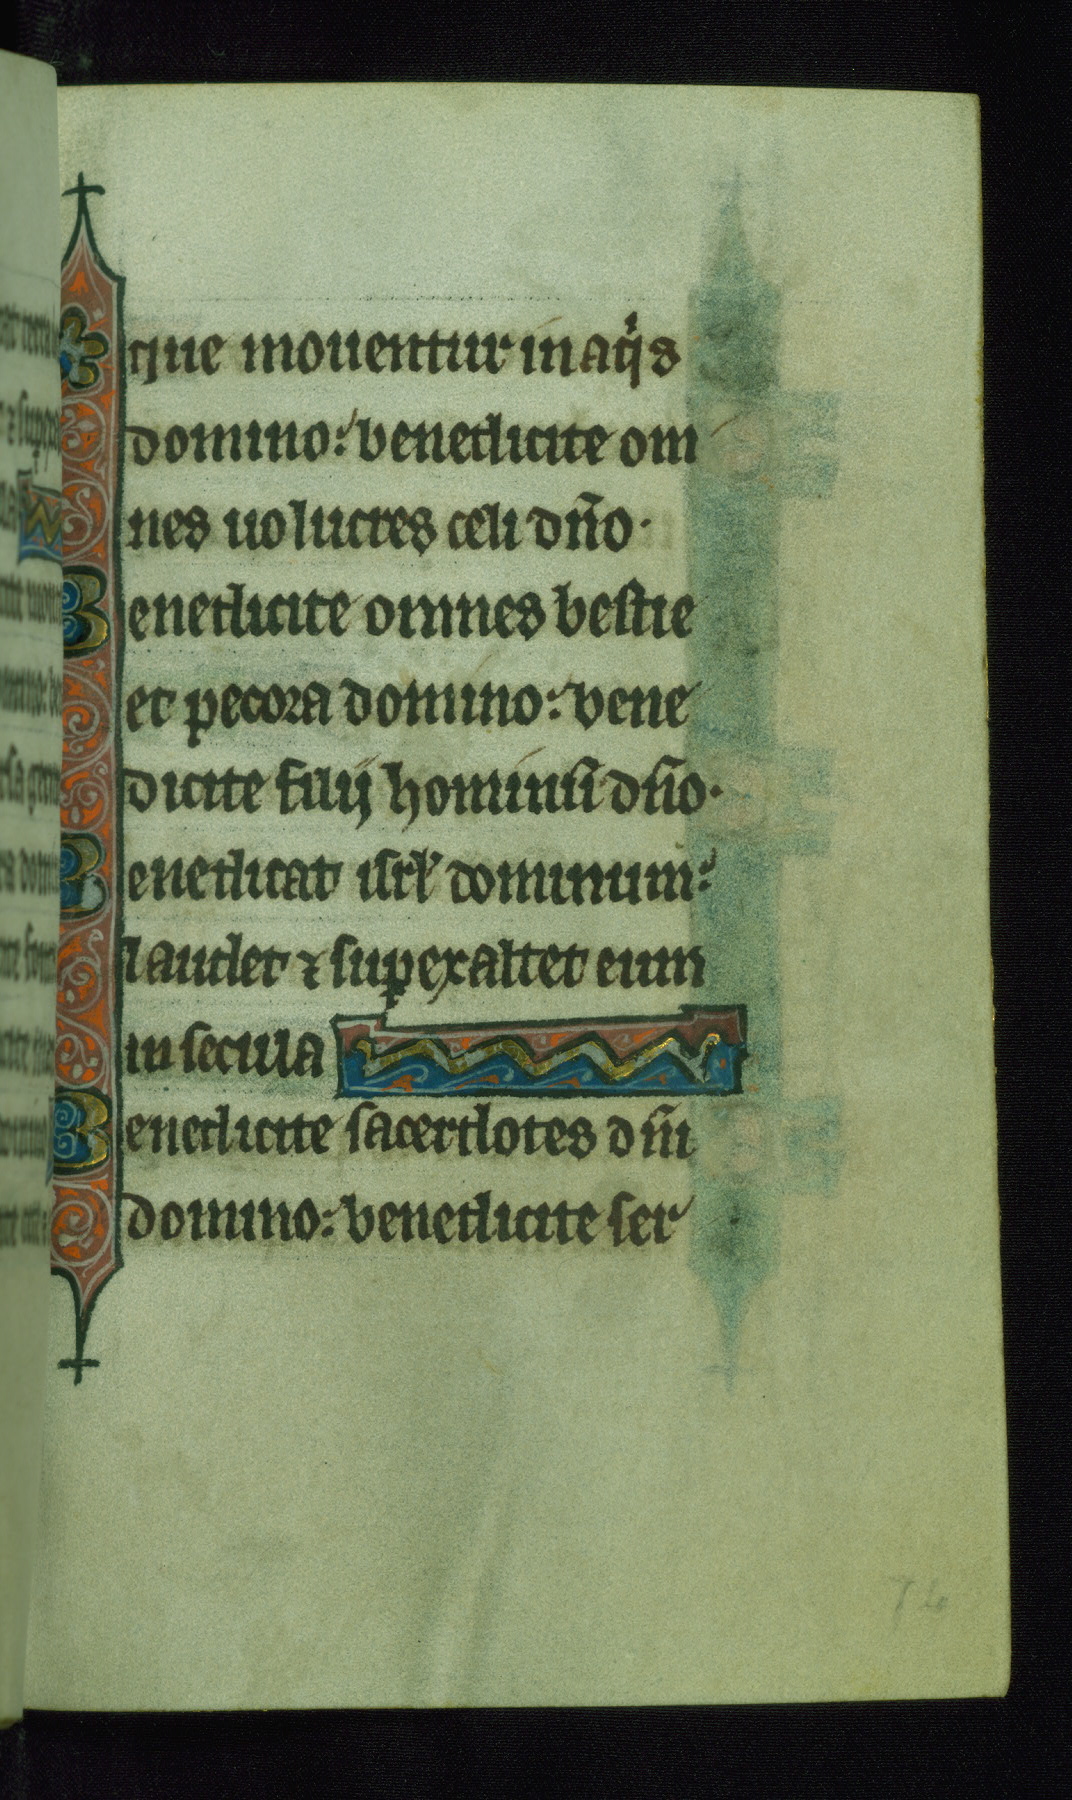 que mouentur in aq̇s
domino: benedicite om
nes uolucres celi dño.
Benedicite omnes bestie
et pecora domino: bene
dicite filij hominũ dño.
Benedicat isrl' dominum:
laudet ⁊ suꝑexaltet eum
in secula
Benedicite sacerdotes dñi
domino: benedicite ser
74